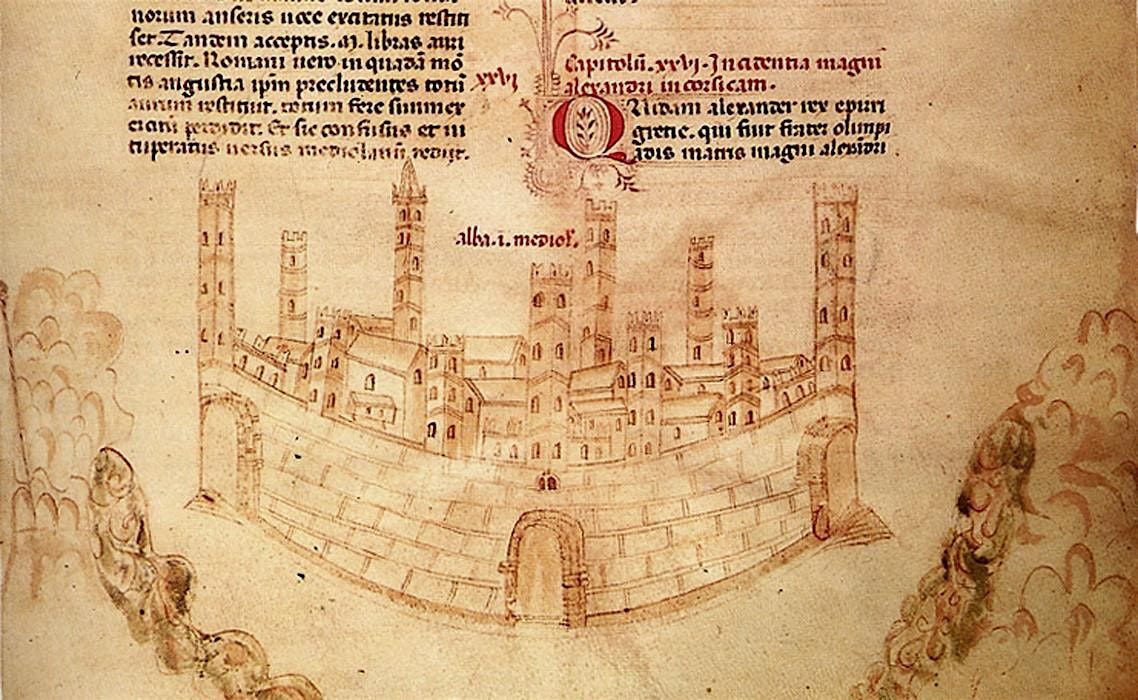 norum anseris uoce excitatus restiti
set. Tandem acceptis .M. libras auri
recessit. Romani uero in quadā mō
tis angustia ipm precludentes totū
aurum restituit. totum fere suum ex
ercitū perdidit. Et sic confusus et ui
tuperatus uersus mediolanū redijt.
xxvi
Capitolū .xxvi. Incidentia magni
alexandri in corsicam.
Quidam alexander rex epyri
gretie. qui fuit frater olimpi
adis matris magni alexādri
alba .i. mediol'.